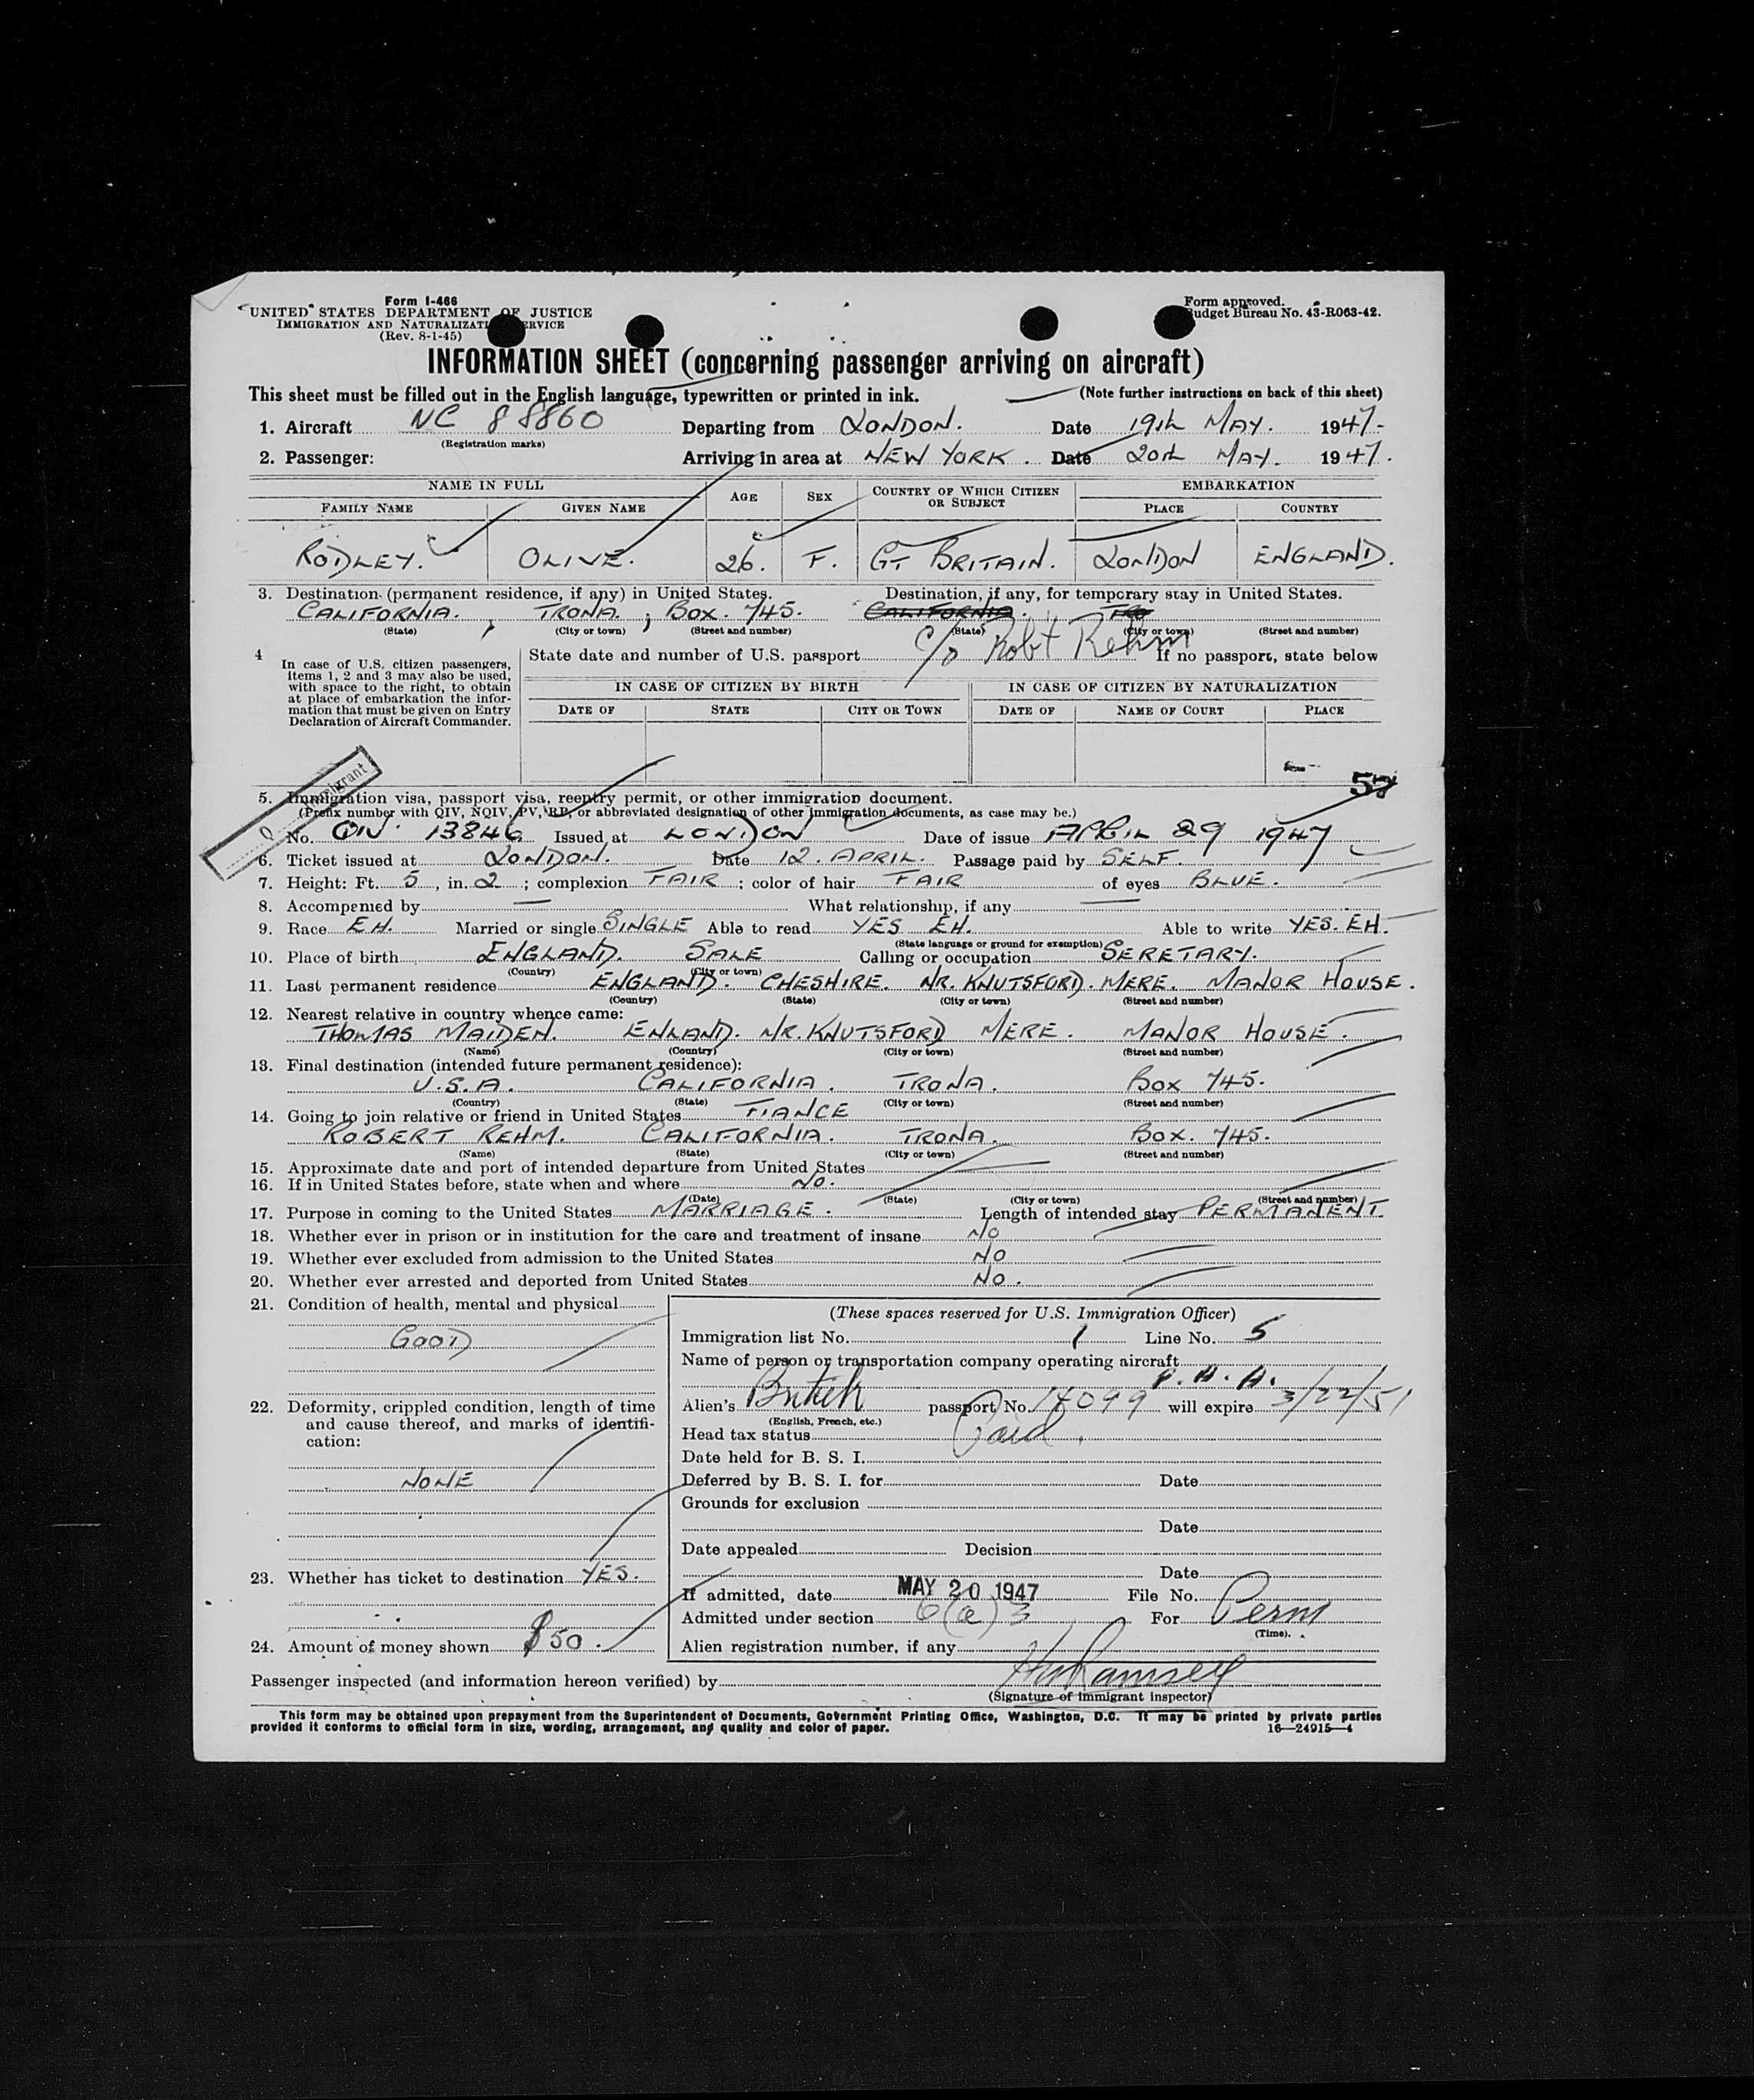 Form I-466
UNITED STATES DEPARTMENT OF JUSTICE
IMMIGRATION AND NATURALIZATI ERVICE
(Rev. 8-1-45)
Form approved.
udget Bureau No. 43-R063-42.
INFORMATION SHEET (concerning passenger arriving on aircraft)
This sheet must be filled out in the English language, typewritten or printed in ink. (Note further instructions on back of this sheet)
1. Aircraft NC 88860 Departing from LONDON. Date 19th MAY. 1947-
(Registration marks)
2. Passenger: Arriving in area at NEW YORK. Date 20th MAY. 1947.
NAME IN FULL AGE SEX COUNTRY OF WHICH CITIZEN OR SUBJECT EMBARKATION
FAMILY NAME GIVEN NAME PLACE COUNTRY
RODLEY. OLIVE. 26. F. GT BRITAIN. LONDON ENGLAND.
3. Destination (permanent residence, if any) in United States. Destination, if any, for temporary stay in United States.
CALIFORNIA. , TRONA. ; BOX. 745. CALIFORNIA. TRO
(State) (City or town) (Street and number) (State) (City or town) (Street and number)
c/o Robt Rehm
4 In case of U.S. citizen passengers, items 1, 2 and 3 may also be used, with space to the right, to obtain at place of embarkation the information that must be given on Entry Declaration of Aircraft Commander.
State date and number of U.S. passport If no passport, state below
IN CASE OF CITIZEN BY BIRTH IN CASE OF CITIZEN BY NATURALIZATION
DATE OF STATE CITY OR TOWN DATE OF NAME OF COURT PLACE
5. Immigration visa, passport visa, reentry permit, or other immigration document.
(Prefix number with QIV, NQIV, PV, RP, or abbreviated designation of other immigration documents, as case may be.)
No. QIV. 13846 Issued at LONDON Date of issue APRIL 29 1947
6. Ticket issued at LONDON. Date 12. APRIL. Passage paid by SELF.
7. Height: Ft. 5, in. 2; complexion FAIR; color of hair FAIR of eyes BLUE.
8. Accompanied by — What relationship, if any —
9. Race EH. Married or single SINGLE Able to read YES EH. Able to write YES. EH.
(State language or ground for exemption)
10. Place of birth ENGLAND. SALE Calling or occupation SERETARY.
(Country) (City or town)
11. Last permanent residence ENGLAND. CHESHIRE. NR. KNUTSFORD. MERE. MANOR HOUSE.
(Country) (State) (City or town) (Street and number)
12. Nearest relative in country whence came:
THOMAS MAIDEN. ENLAND. NR. KNUTSFORD MERE. MANOR HOUSE.
(Name) (Country) (City or town) (Street and number)
13. Final destination (intended future permanent residence):
U.S.A. CALIFORNIA. TRONA. BOX 745.
(Country) (State) (City or town) (Street and number)
14. Going to join relative or friend in United States FIANCE
ROBERT REHM. CALIFORNIA. TRONA. BOX. 745.
(Name) (State) (City or town) (Street and number)
15. Approximate date and port of intended departure from United States
16. If in United States before, state when and where NO.
(Date) (State) (City or town) (Street and number)
17. Purpose in coming to the United States MARRIAGE. Length of intended stay PERMANENT.
18. Whether ever in prison or in institution for the care and treatment of insane NO
19. Whether ever excluded from admission to the United States NO
20. Whether ever arrested and deported from United States NO.
21. Condition of health, mental and physical
GOOD
22. Deformity, crippled condition, length of time
and cause thereof, and marks of identifi-
cation:
NONE
23. Whether has ticket to destination YES.
24. Amount of money shown $50.
(These spaces reserved for U.S. Immigration Officer)
Immigration list No. 1 Line No. 5
Name of person or transportation company operating aircraft
P.A.A.
Alien's British passport No. 14099 will expire 3/22/51
(English, French, etc.)
Head tax status Paid.
Date held for B. S. I.
Deferred by B. S. I. for Date
Grounds for exclusion
Date
Date appealed Decision
Date
If admitted, date MAY 20 1947 File No.
Admitted under section 6(a)3 For Perm
(Time).
Alien registration number, if any
Passenger inspected (and information hereon verified) by HWRamsey
(Signature of immigrant inspector)
This form may be obtained upon prepayment from the Superintendent of Documents, Government Printing Office, Washington, D.C. It may be printed by private parties
provided it conforms to official form in size, wording, arrangement, and quality and color of paper. 16—24915—4